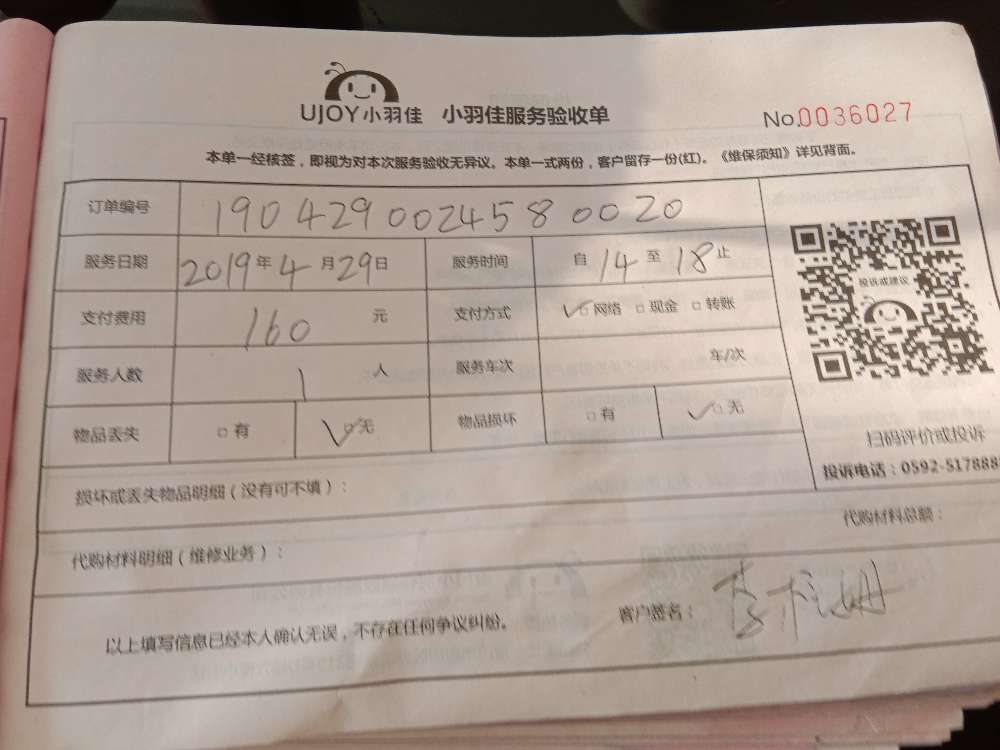 UJOY小羽佳 小羽佳服务验收单 No.0036027
本单一经核签，即视为对本次服务验收无异议。本单一式两份，客户留存一份(红)。《维保须知》详见背面。
订单编号 190429002458 0020
服务日期 2019年4月29日 服务时间 自14至18止
支付费用 160 元 支付方式 ✓□网络 □现金 □转账
服务人数 1 人 服务车次 车/次
物品丢失 □有 ✓□无 物品损坏 □有 ✓□无
投诉或建议
扫码评价或投诉
投诉电话：0592-5178888
损坏或丢失物品明细（没有可不填）：
代购材料明细（维修业务）： 代购材料总额：
以上填写信息已经本人确认无误，不存在任何争议纠纷。 客户签名：李